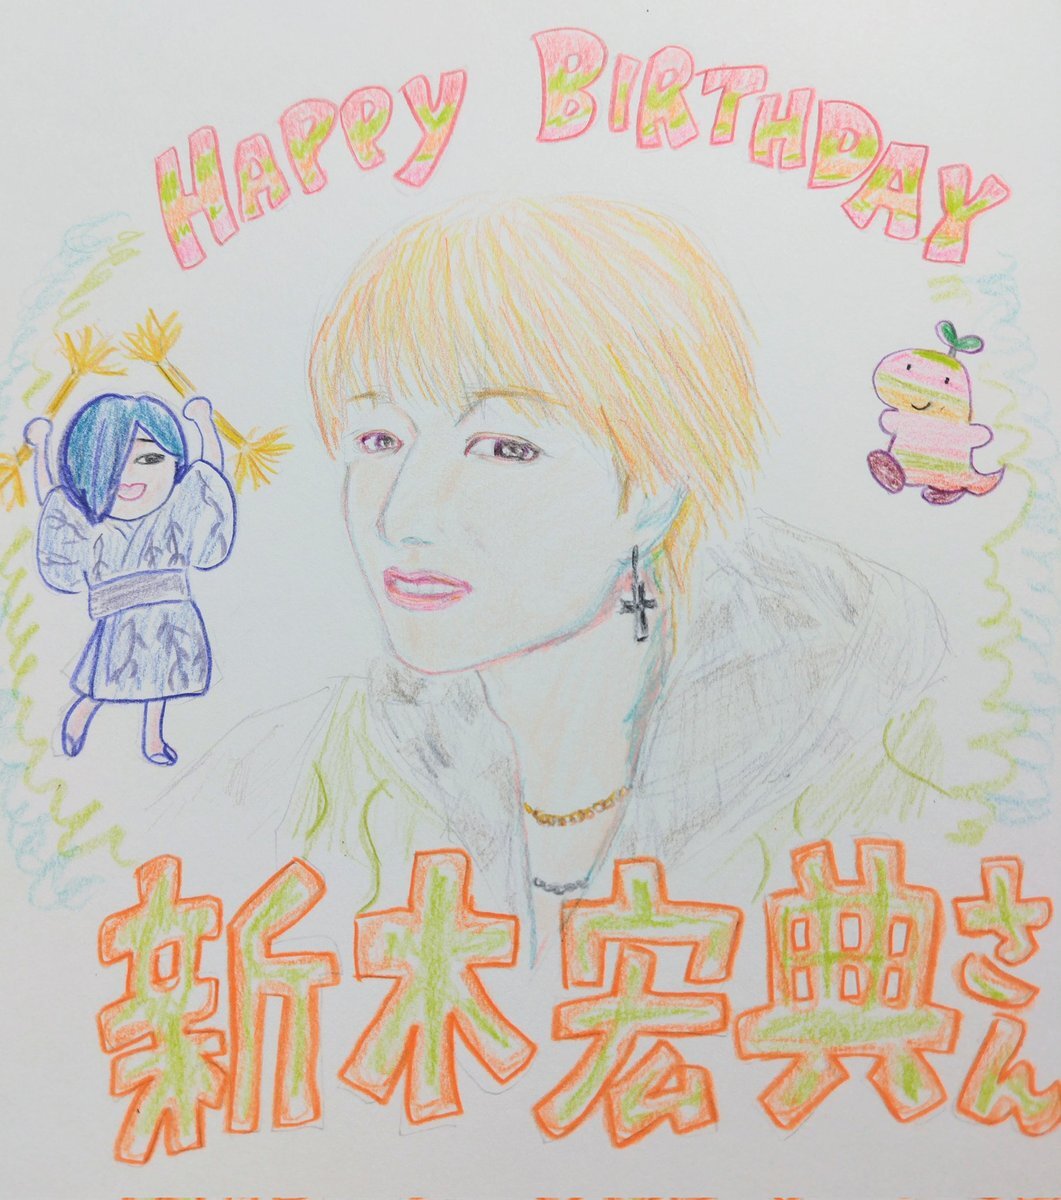 HAPPY BIRTHDAY
新木宏典さん